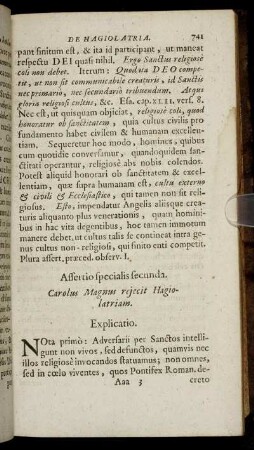 DE HAGIOLATRIA. 741
pant finitum est, & ita id participant, ut maneat
respectu DEI quasi nihil. Ergo Sanctus religiosè
coli non debet. Iterum: Quod uia DEO compe-
tit, ut non sit communicabile creaturis, id Sanctis
nec primario, nec secundariò tribuendum. Atqui
gloria religiosi cultus, &c. Esa. cap. XLII. vers. 8.
Nec est, ut quisquam objiciat, religiosè coli, quod
honoratur ob sanctitatem, quia cultus civilis pro
fundamento habet civilem & humanam excellen-
tiam. Sequeretur hoc modo, homines, quibus
cum quotidie conversamur, quandoquidem san-
ctitati operantur, religiosè abs nobis colendos.
Potest aliquid honorari ob sanctitatem & excel-
lentiam, quæ supra humanam est, cultu externo
& civili & Ecclesiastico, qui tamen non sit re-
ligiosus. Esto, impendatur Angelis aliisque creatu-
ris aliquanto plus venerationis, quam homini-
bus in hac vita degentibus, hoc tamen immotum
manere debet, ut cultus talis se contineat intra ge-
nus cultus non-religiosi, qui finito enti competit.
Plura assert, præced. observ. I.
Assertio specialis secunda.
Carolus Magnus rejecit Hagio-
latriam.
Explicatio.
NOta primò: Adversarii per Sanctos intelli-
gunt non vivos, sed defunctos, quamvis nec
illos religiosè invocandos statuamus; non omnes,
sed in cœlo viventes, quos Pontifex Roman. de-
Aaa 3 creto